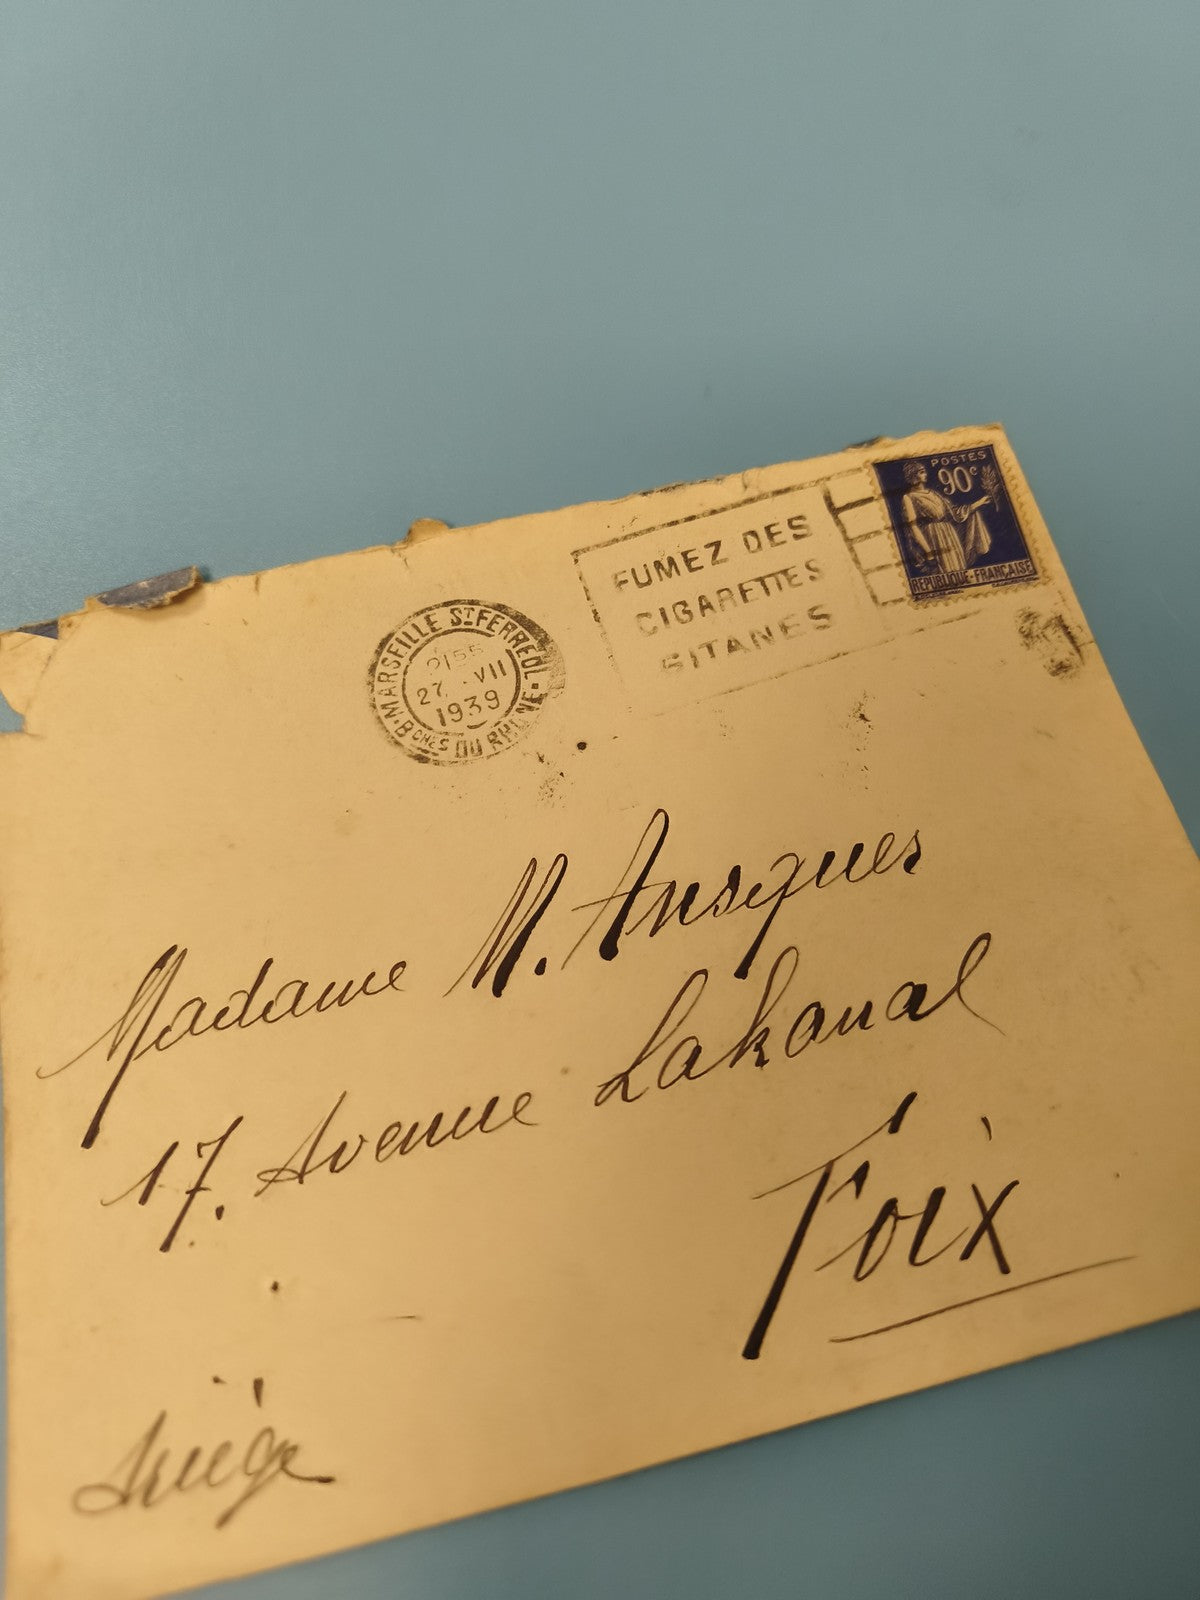 POSTES
90c
REPUBLIQUE-FRANÇAISE
FUMEZ DES
CIGARETTES
GITANES
MARSEILLE ST FERREOL
2155
27 . VII
1939
BCHES DU RHONE
Madame M. Ansques
17. Avenue Lakanal
Foix
Ariège